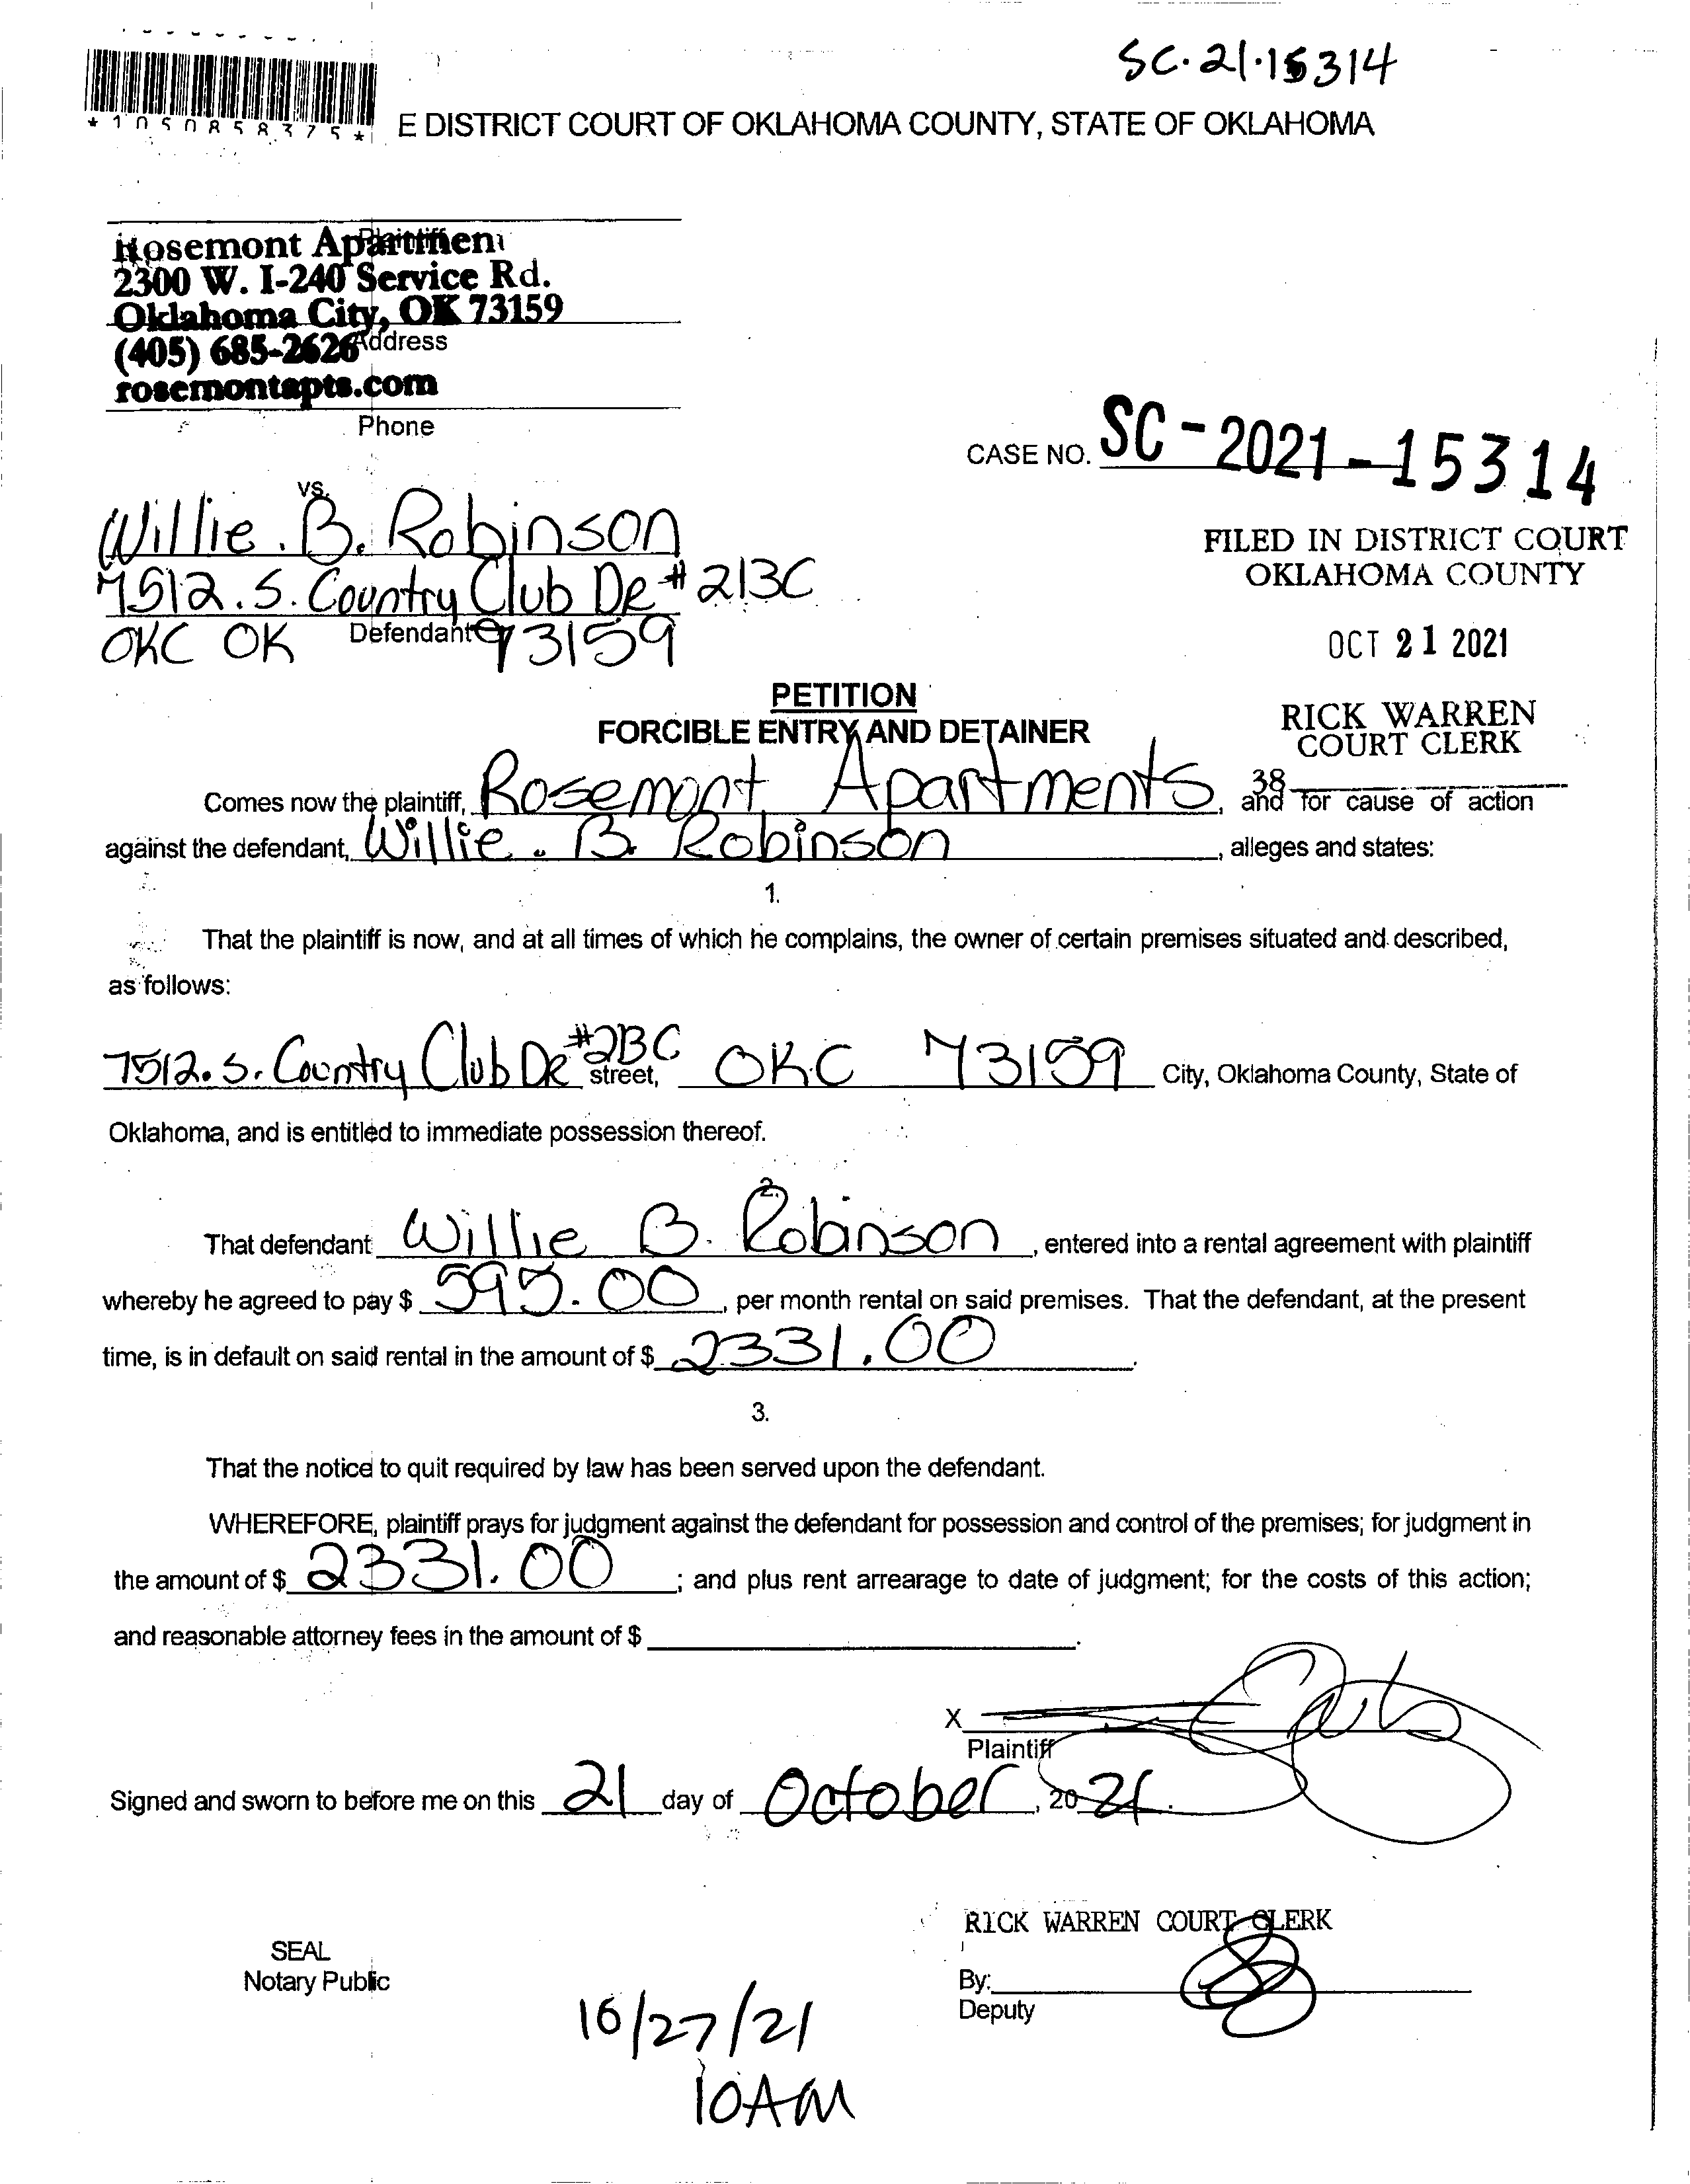 SC.21.15314
*1050858375*
E DISTRICT COURT OF OKLAHOMA COUNTY, STATE OF OKLAHOMA
Plaintiff
Rosemont Apartmen
2300 W. I-240 Service Rd.
Oklahoma City, OK 73159
(405) 685-2626 Address
rosemontapts.com
Phone
CASE NO. SC-2021-15314
vs.
Willie. B. Robinson
7512. S. Country Club DR #213C
OKC OK Defendant 73159
FILED IN DISTRICT COURT
OKLAHOMA COUNTY
OCT 21 2021
RICK WARREN
COURT CLERK
38
PETITION
FORCIBLE ENTRY AND DETAINER
Comes now the plaintiff, Rosemont Apartments, and for cause of action
against the defendant, Willie. B. Robinson, alleges and states:
1.
That the plaintiff is now, and at all times of which he complains, the owner of certain premises situated and described,
as follows:
7512. S. Country Club DR #213C street, OKC 73159 City, Oklahoma County, State of
Oklahoma, and is entitled to immediate possession thereof.
2.
That defendant Willie B. Robinson, entered into a rental agreement with plaintiff
whereby he agreed to pay $ 595.00, per month rental on said premises. That the defendant, at the present
time, is in default on said rental in the amount of $ 2331.00.
3.
That the notice to quit required by law has been served upon the defendant.
WHEREFORE, plaintiff prays for judgment against the defendant for possession and control of the premises; for judgment in
the amount of $ 2331.00; and plus rent arrearage to date of judgment; for the costs of this action;
and reasonable attorney fees in the amount of $ .
X
Plaintiff
Signed and sworn to before me on this 21 day of October, 2021.
RICK WARREN COURT CLERK
SEAL
Notary Public
By:
Deputy
10/27/21
10AM